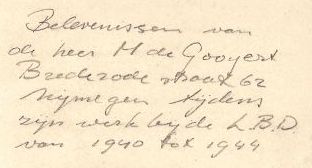 Belevenissen van
de heer M de Gooyert
Brederodestraat 62
Nijmegen tijdens
zijn werk bij de L.B.D.
van 1940 tot 1944